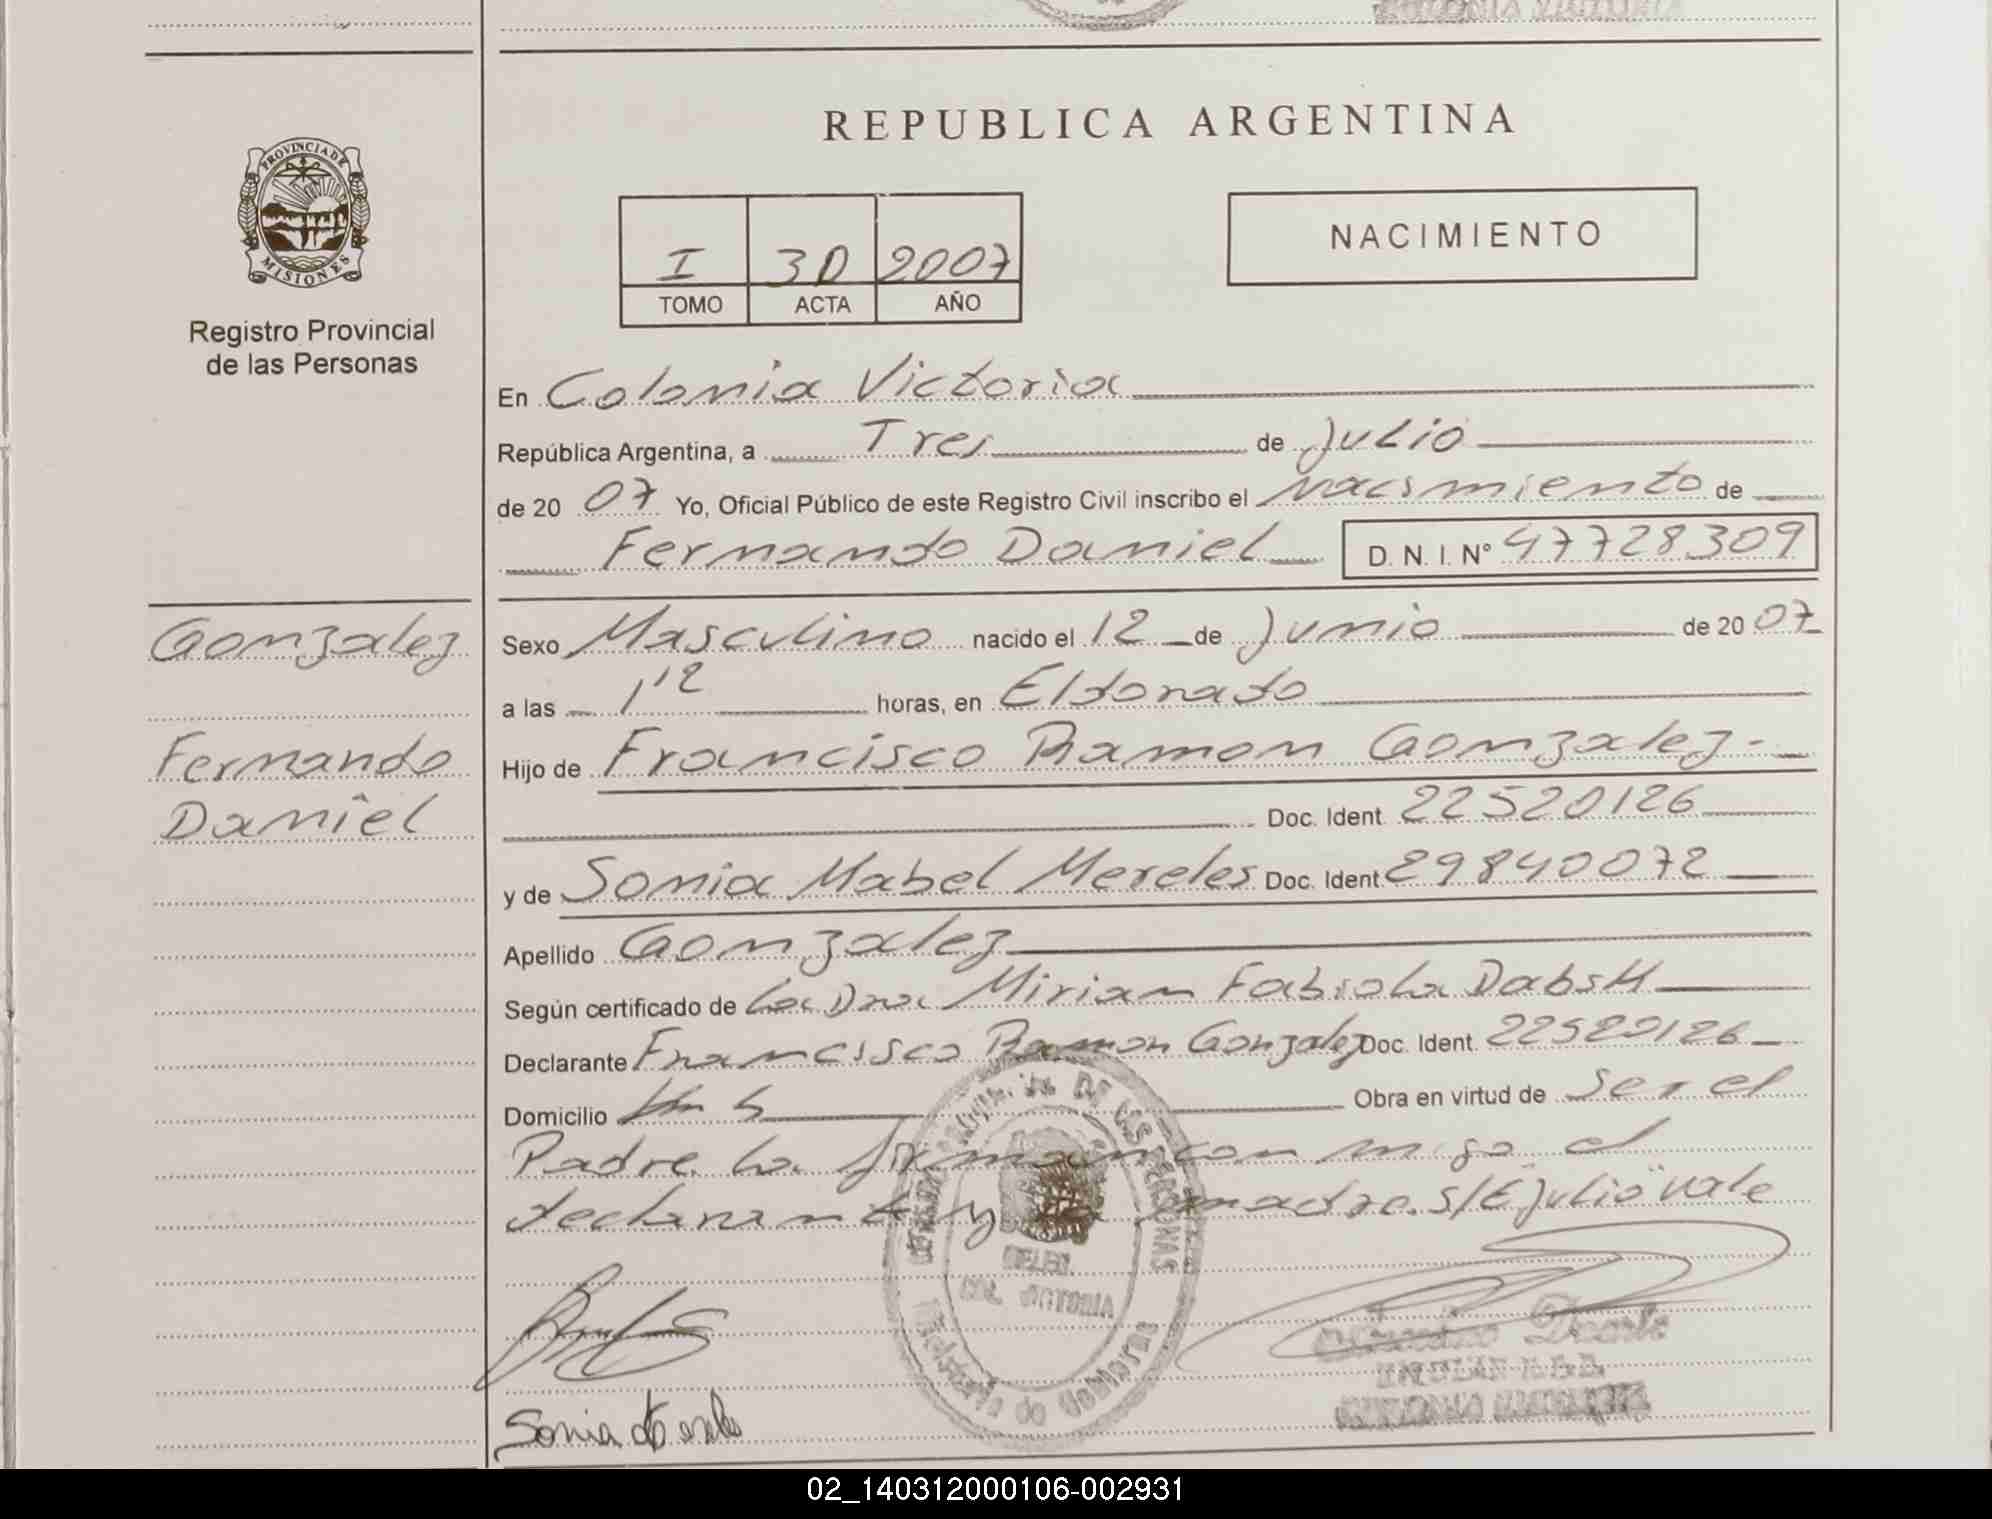 PROVINCIA DE
MISIONES
Registro Provincial
de las Personas
Gonzalez
Fernando
Daniel
REPUBLICA ARGENTINA
I 30 2007
TOMO ACTA AÑO
NACIMIENTO
En Colonia Victoria
República Argentina, a Tres de Julio
de 20 07 Yo, Oficial Público de este Registro Civil inscribo el nacimiento de
Fernando Daniel D. N. I. N° 47728309
Sexo Masculino nacido el 12 de Junio de 20 07
a las 1'12 horas, en Eldorado
Hijo de Francisco Ramon Gonzalez -
Doc. Ident. 22520126
y de Sonia Mabel Mereles Doc. Ident. 29840072
Apellido Gonzalez
Según certificado de La Dra Miriam Fabiola
Declarante Francisco Ramon Gonzalez Doc. Ident. 22520126
Domicilio Km 5 Obra en virtud de Ser el
Padre. La firman con migo el
declarante y la madre. S/E "julio" vale
DE LAS PERSONAS
DELEG
COL VICTORIA
Ministerio de Gobierno
Sonia
02_140312000106-002931